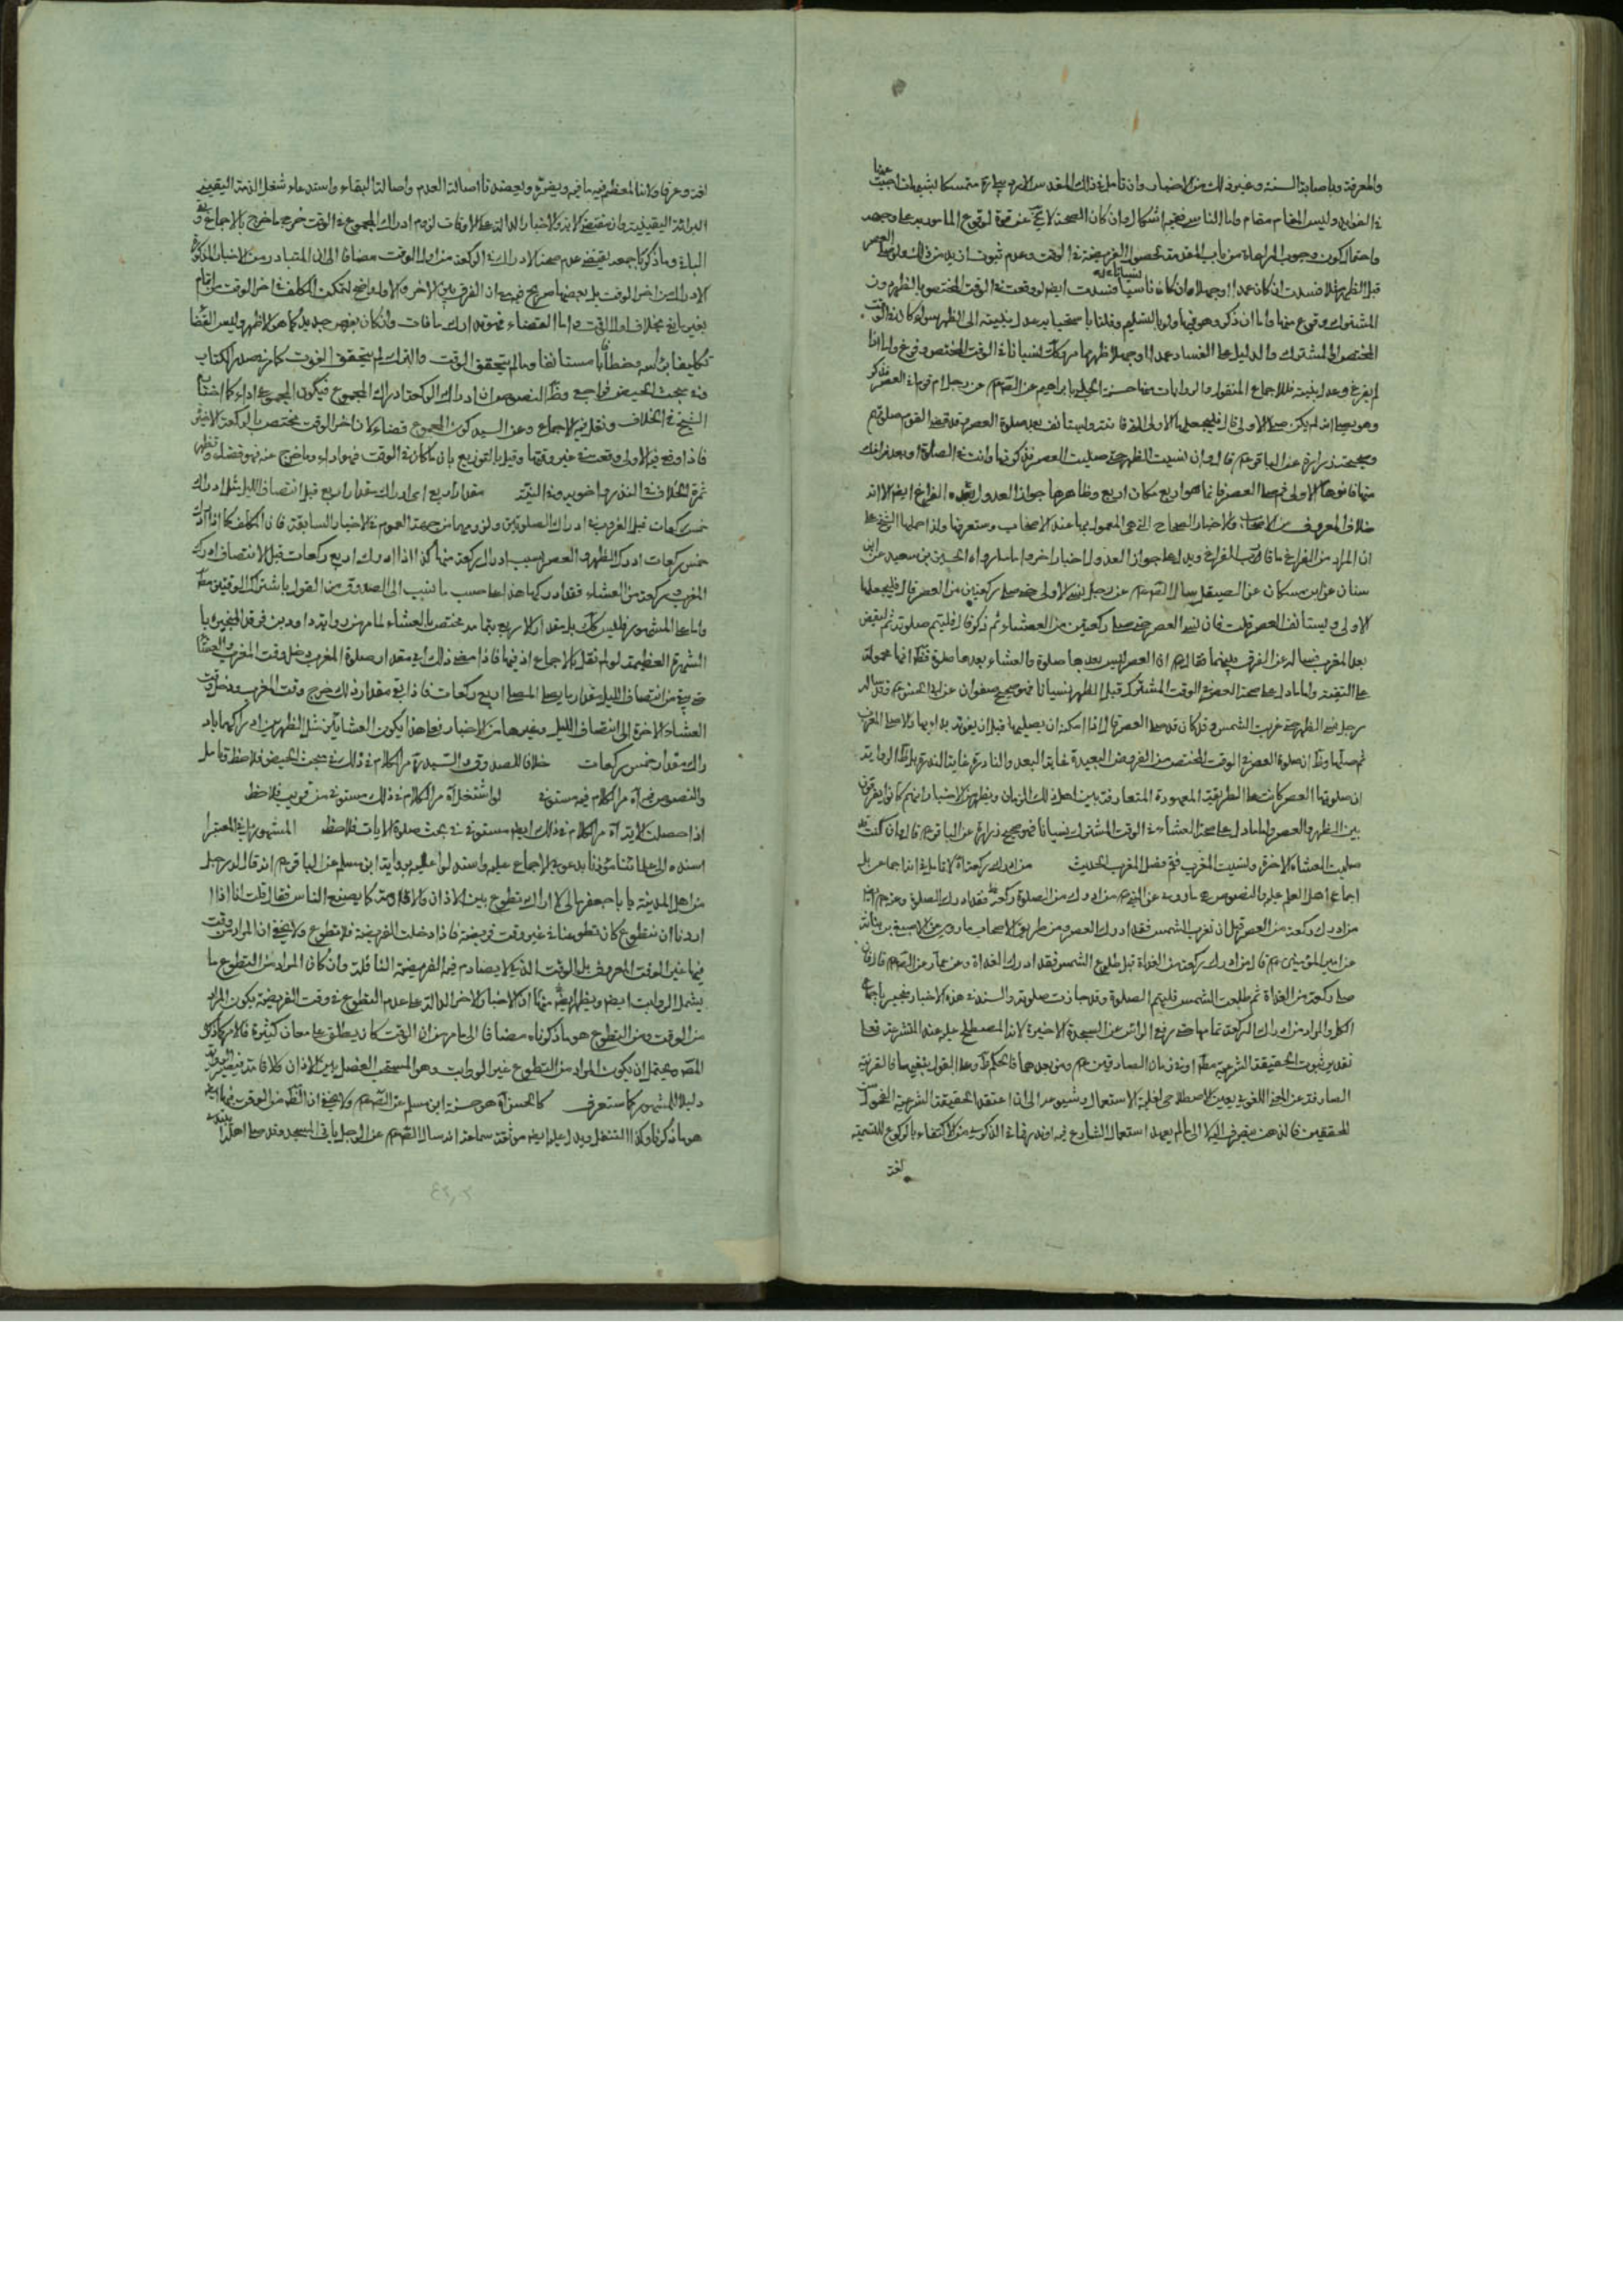 والمعرفة وباصابة السنة وغير ذلك من الاخبار وان تامل في ذلك المقدس الاردبيلي ره متمسكا بشبهات اجبنا عنها
في الفوايد وليس المقام مقام واما الناسي ففيه اشكال وان كان الصحة لا يخ عن قوة لوقوع المامور به على وجهه
واحتمال كون وجوب المراعاة من باب المقدمة لحصول الفريضة في الوقت وعدم ثبوت ازيد من ذلك ولو صلى العصر
قبل الظهر فسدت ان كان عمدا او جهلا وان كان ناسيا فسدت ايضا لو وقعت في الوقت المختص بالظهر دون
المشترك وقوع منها واما ان ذكر وهو فيها ولو بالتسليم وقلنا باستحبابه عدل بنيته الى الظهر سواء كان في الوقت
المختص او المشترك والدليل على الفساد عمدا او جهلا ظهر مما مر وكك نسيانا في الوقت المختص وفرغ واما اذا
لم يفرغ وعدل بنيته فللاجماع المنقول والروايات منها حسنة الحلبي بابراهيم عن الصادق عن رجل ام قوما في العصر فذكر
وهو يصلي انه لم يكن صلى الاولى قال فليجعلها الاولى التي فاتته وليستانف بعد صلوة العصر وقد قضى القوم صلوتهم
وصحيحة زرارة عن الباقر ع قال وان نسيت الظهر حتى صليت العصر فذكرتها وانت في الصلوة او بعد فراغك
منها فانوها الاولى ثم صل العصر فانما هو اربع مكان اربع وظاهرها جواز العدول بعد الفراغ ايضا الا انه
خلاف المعروف من الاصحاب والاخبار الصحاح التي هي المعمول بها عند الاصحاب وستعرفها ولذا حملها الشيخ على
ان المراد من الفراغ ما قارب الفراغ ويدل على جواز العدول اخبار اخر واما ما رواه الحسين بن سعيد عن ابن
سنان عن ابن مسكان عن الصيقل سال الصادق عن رجل نسي الاولى حتى صلى ركعتين من العصر قال فليجعلها
الاولى وليستانف العصر قلت فان نسي العصر حتى صلى ركعتين من العشاء ثم ذكر قال فليتم صلوته ثم ليقض
بعد المغرب فساله عن الفرق بينهما فقال ان العصر ليس بعدها صلوة والعشاء بعدها صلوة فظ انها محمولة
على التقية واما ما دل على صحة العصر في الوقت المشترك قبل الظهر نسيانا فهو صحيح صفوان عن ابي الحسن وقد ساله
رجل نسي الظهر حتى غربت الشمس وقد كان قد صلى العصر قال اذا امكنه ان يصليها قبل ان يفوته بدا بها والا صلى المغرب
ثم صلاها وظ ان صلوة العصر في الوقت المختص من الفروض البعيدة غاية البعد والنادرة غاية الندرة بل ظ الرواية
ان صلوتها العصر كانت على الطريقة المعهودة المتعارفة بين اهل ذلك الزمان ويظهر من الاخبار انهم كانوا يفرقون
بين الظهر والعصر واما ما دل على صحة العشاء في الوقت المشترك نسيانا فهو صحيح زرارة عن الباقر قال وان كنت قد
صليت العشاء الاخرة ونسيت المغرب فقم فصل المغرب الحديث من ادرك ركعة اه لا تامل في انه اجماعي بل
اجماع اهل العلم عليه والنصوص هي ما روى عن النبي ص من ادرك من الصلوة ركعة فقد ادرك الصلوة وعنه ص ايضا
من ادرك ركعة من العصر قبل ان تغرب الشمس فقد ادرك العصر ومن طريق الاصحاب ما روى عن الاصبغ بن نباتة
عن امير المؤمنين ع قال من ادرك ركعة من الغداة قبل طلوع الشمس فقد ادرك الغداة وعن عمار عن الصادق قال فان
صلى ركعة من الغداة ثم طلعت الشمس فليتم الصلوة وقد جازت صلوته والسند في هذه الاخبار منجبر باجماع
الكل والمراد من ادراك الركعة تمامها حتى رفع الراس عن السجدة الاخيرة لانه المصطلح عليه عند المتشرعة فعلى
تقدير ثبوت الحقيقة الشرعية مطلقا او في زمان الصادقين ع ومن بعدهما فالحكم ظ وعلى القول بنفيها فالقرينة
الصارفة عن المعنى اللغوي يعين الاصطلاحي لغلبة الاستعمال وشيوعه الى ان اعتقد الحقيقة الشرعية الفحول من
المحققين فالذهن ينصرف اليه لا الى ما لم يعهد استعمال الشارع فيه او ندر فما في الذكرى من الاكتفاء بالركوع للتسمية
لغة
لغة وعرفا ولانه المعظم فيه ما فيه ويضره ويعضدنا اصالة العدم واصالة البقاء واستدعاء شغل الذمة اليقيني
البرائة اليقينية وان مقتضى الاية والاخبار الدالة على الاوقات لزوم ادراك المجموع في الوقت خرج ما خرج بالاجماع وبقي
الباقي وما ذكرنا جمعه يقتضي عدم صحة الادراك في الركعة من اول الوقت مضافا الى ان المتبادر من الاخبار المذكورة
الادراك من اخر الوقت بل بعضها صريح فيه مع ان الفرق بين الاخر والاول واضح لتمكن المكلف في اخر الوقت من اتمام
بغير مانع بخلاف اول الوقت واما القضاء فهو تدارك ما فات وان كان بفرض جديد كما هو الاظهر وليس القضا
تكليفا براسه وخطابا مستانفا وما لم يتحقق الوقت والترك لم يتحقق الفوت كما رخصه الكتاب
وفي مبحث الحيض فراجع وظ النصوص ان ادراك الركعة ادراك المجموع فيكون المجموع اداء كما اختاره
الشيخ في الخلاف ونقل فيه الاجماع وعن السيد كون المجموع قضاء لان اخر الوقت مختص بالركعة الاخيرة
فاذا وقع فيه الاولى وقعت في غير وقتها وقيل بالتوزيع بان ما كان في الوقت فهو اداء وما خرج عنه فهو قضاء وتظهر
ثمرة الخلاف في النذر وما ضربه وفي النية مقدار اربع اي ادراك مقدار اربع قبل انتصاف الليل مثل ادراك
خمس ركعات قبل الغروب في ادراك الصلوتين ولزومهما من جهة العموم في الاخبار السابقة فان المكلف كما اذا ادرك
خمس ركعات ادرك الظهر والعصر بسبب ادراك ركعة منهما كذا اذا ادرك اربع ركعات قبل الانتصاف ادرك
المغرب وركعة من العشاء فقد ادركهما هذا على حسب ما نسب الى الصدوق من القول باشتراك الوقتين مطلقا
واما على المشهور فليس كك بل مقدار الاربع بتمامه مختص بالعشاء لما مر من رواية داود بن فرقد المنجبرة با
الشهرة العظيمة لو لم نقل بالاجماع اذ فيها فاذا مضى ذلك اي مقدار صلوة المغرب دخل وقت المغرب والعشاء
حتى يبقى من انتصاف الليل مقدار ما يصلي المصلي اربع ركعات فاذا بقي مقدار ذلك خرج وقت المغرب وبقي وقت
العشاء الاخرة الى انتصاف الليل وغيرها من الاخبار فعلى هذا يكون العشائين مثل الظهرين ادراكهما باد
راك مقدار خمس ركعات خلافا للصدوق والسيد ره مر الكلام في ذلك في مبحث الحيض فلاحظ وتامل
والنصوص فيه اه مر الكلام فيه مستوفى لو اشتغل اه مر الكلام في ذلك مستوفى من قريب فلاحظ
اذا حصلت الاية اه مر الكلام في ذلك ايضا مستوفى في بحث صلوة الايات فلاحظ المشهور اه في المعتبر
اسنده الى علمائنا مؤذنا بدعوى الاجماع عليه واستدلوا عليه برواية ابن مسلم عن الباقر ع انه قال له رجل
من اهل المدينة يا با جعفر مالي لا اراك تتطوع بين الاذان والاقامة كما يصنع الناس فقال قلت انا اذا
اردنا ان نتطوع كان تطوعنا في غير وقت فريضة فاذا دخلت الفريضة فلا تطوع ولا يخفى ان المراد من وقت
فيها غير الوقت المعروف بل الوقت الذي لا يصادم فيه الفريضة النافلة وان كان المراد من التطوع ما
يشمل الرواتب ايضا ويظهر ايضا منها ان الاخبار الاخر الدالة على عدم التطوع في وقت الفريضة يكون المراد
من الوقت ومن التطوع هو ما ذكرناه مضافا الى ما مر من ان الوقت كان يطلق على معان كثيرة فالامر كما ذكره
المصنف ويحتمل ان يكون المراد من التطوع غير الرواتب وهو المستحب الفصل بين الاذان والاقامة فيصير الرواية
دليلا للمشهور كما ستعرف كالحسن اه هو حسنة ابن مسلم عن الصادق ع ولا يخفى ان الظ من الوقت فيها ايضا
هو ما ذكرنا وكذا التنفل ويدل عليه ايضا موثقة سماعة انه سال الصادق عن الرجل ياتي المسجد وقد صلى اهله ايبتدي